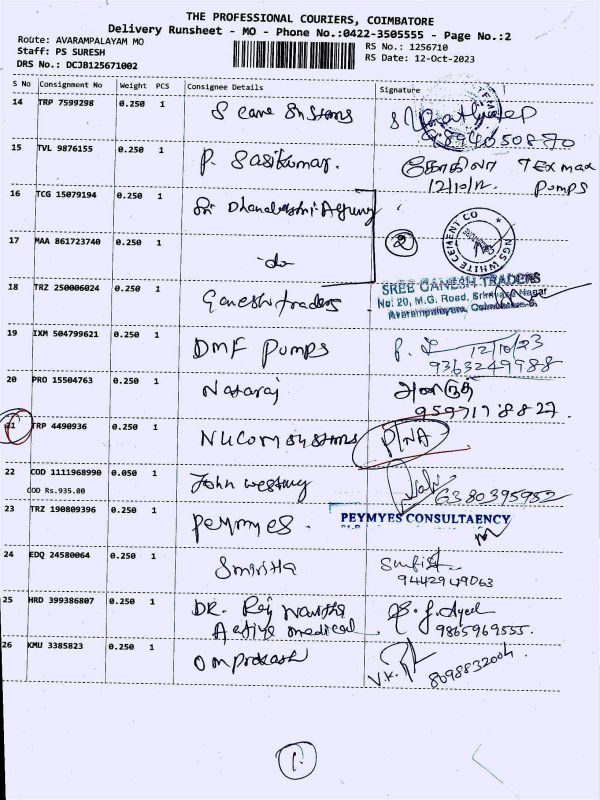 THE PROFESSIONAL COURIERS, COIMBATORE
Delivery Runsheet - MO - Phone No.:0422-3505555 - Page No.:2
Route: AVARAMPALAYAM MO
RS No.: 1256710
Staff: PS SURESH
RS Date: 12-Oct-2023
DRS No.: DCJB125671002
S No Consignment No Weight PCS Consignee Details Signature
14 TRP 7599298 0.250 1 S Cane
15 TVL 9876155 0.250 1 P. Sasikumar. கோகிலா Texmax
12/10/12. Pumps
16 TCG 15079194 0.250 1 Sri Dhanalakshmi Agency
17 MAA 861723740 0.250 1 -do- 2
WHITE CEMENT CO
18 TRZ 250006024 0.250 1 Ganesh traders
SREE GANESH TRADERS
No: 20, M.G. Road, Srinivasa Nagar
Avarampalayam, Coimbatore-6
19 IXM 504799621 0.250 1 DMF Pumps 12/10/23
9363249988
20 PRO 15504763 0.250 1 Nataraj
9597178827.
21 TRP 4490936 0.250 1 Nucom systems P/NA
22 COD 1111968990 0.050 1 John
6380395982
COD Rs.935.00
23 TRZ 190809396 0.250 1 Peymyes. PEYMYES CONSULTAENCY
24 EDQ 24580064 0.250 1
25 HRD 399386807 0.250 1 DR.
Active medical 9865969555.
26 KMU 3385823 0.250 1 Omprokash V.K. 8098832004
1.